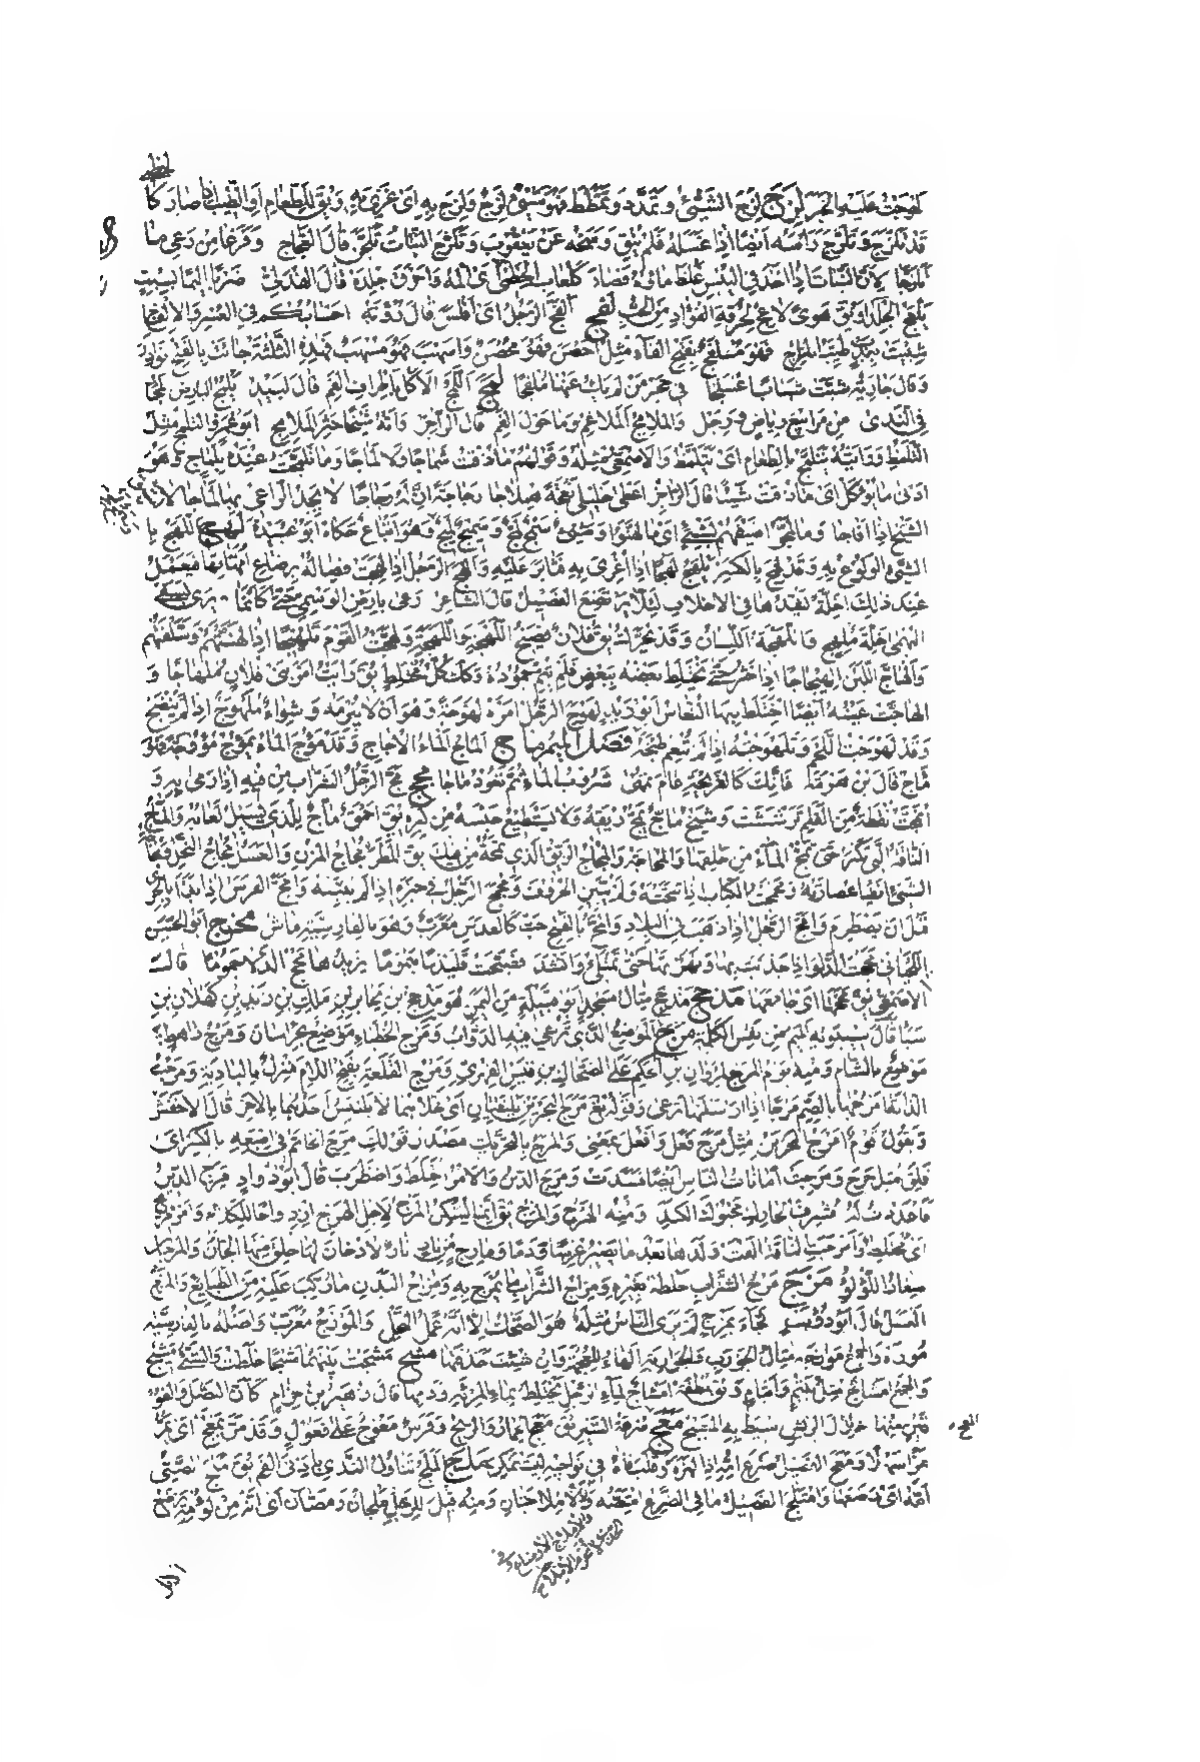 لهوجت عليه الخبز لزج لزج الشيء وتمدد وتمطط فهو شيء لزج ولزج به اي غري به ويق للطعام او الطيب اذا صار كا
قد تلزج وتلزج راسه ايضا اذا غسله فلم ينق وسخه عن يعقوب وتلزج النبات تلجن قال العجاج وفرغا من رعي ما
تلزجا لان النبات اذا اخذ في اليبس غلظ ماؤه فصار كلعاب الخطمي اي المه واحرق جلده قال الهذلي ضربا اليما بسبت
يلعج الجلدا يق هوى لاعج لحرقة الفؤاد من الحب لفج الفج الرجل اي افلس قال رؤبة احسابكم في العسر والالفاج
شيبت بعذب طيب المزاج فهو ملفج بفتح الفاء مثل احصن فهو محصن واسهب فهو مسهب فهذه الثلثة جاءت بالفتح نوادر
وقال جارية شبت شبابا عسلجا في حجر من لم يك عنها ملفجا لمج اللمج الاكل باطراف الفم قال لبيد يلمج البارض لمجا
في الندى من مرابيع رياض ورجل والملامج الملاغم وما حول الفم قال الراجز راته شيخا حثر الملامج ابو عمرو التلمج مثل
التلمظ ورايته يتلمج بالطعام اي يتلمظ والاصمعي مثله وقولهم ما ذقت شماجا ولا لماجا وما تلمجت عنده بلماج وهو
ادنى ما يؤكل اي ما ذقت شيئا قال الراجز اعطى خليلي نعجة هملاجا رجاجة ان له رجاجا لا يجد الراعي بها لماجا لا تسبق
الشيخ اذا افاجا وما لمجوا ضيفهم بشيء اي ما لهنوا وشيء سمج لمج وسميج لميج وهو اتباع حكاه ابو عبيدة لهج اللهج با
الشيء الولوع به وقد لهج بالكسر يلهج لهجا اذا اغري به فثابر عليه والهج الرجل اذا لهجت فصاله برضاع امهاتها فيعمل
عند ذلك اخلة يشدها في الاخلاف لئلا يرتضع الفصيل قال الشاعر رعى بارض الوسمي حتى كانما يرى بسفى
البهمى اخلة ملهج واللهجة اللسان وقد يحرك يق فلان فصيح اللهجة واللهجة ولهجت القوم تلهيجا اذا لهنتهم وسلفتهم
والهاج اللبن الهيجاجا اذا خثر حتى يختلط بعضه ببعض فلم يتم خثورته وكذلك كل مختلط يق رايت امر بني فلان ملهاجا و
الهاجت عينه ايضا اختلط بها النعاس ابو زيد لهوج الرجل امره لهوجة وهو ان لا يبرمه وشواء ملهوج اذا لم ينضج
وقد لهوجت اللحم وتلهوجته اذا لم تنعم طبخه فصل الميم ماج الماج الماء الاجاج وقد مؤج الماء يمؤج مؤوجة فهو
ماج قال بن هرمة فانك كالقريحة عام تمهى شروب الماء ثم تعود ماجا مجج مج الرجل الشراب من فيه اذا رمى به و
انمجت نقطة من القلم ترششت وشيخ ماج يمج ريقه ولا يستطيع حبسه من كبره يق احمق ماج للذي يسيل لعابه والماج
الناقة التي تكبر حتى تمج الماء من حلقها والمجاجة والمجاج الريق الذي تمجه من فيك يق المطر مجاج المزن والعسل مجاج النحل ومجاجة
الشيء ايضا عصارته ومجمجت الكتاب اذا ثبجته ولم تبين الحروف ومجمج الرجل في خبره اذا لم يبينه وامج الفرس اذا بدا بالجري
قبل ان يضطرم وامج الرجل اذا ذهب في البلاد والمج بالفتح حب كالعدس معرب وهو بالفارسية ماش مخج ابو الحسن
اللحياني مخجت الدلو اذا جذبت بها ونهزتها حتى تمتلئ وانشد فصبحت قليذما هموما يزيدها مخج الدلا جموما قال
الاصمعي يق مخجها اي جامعها مذحج مذحج مثال مسجد ابو قبيلة من اليمن هو مذحج بن يحابر بن مالك بن زيد بن كهلان بن
سبا قال سيبويه الميم من نفس الكلمة مرج المرج الموضع الذي ترعى فيه الدواب ومرج الخطباء موضع بخراسان ومرج راهط
موضع بالشام ومنه يوم المرج لمروان بن الحكم على الضحاك بن قيس الفهري ومرج القلعة بفتح اللام منزل بالبادية ومرجت
الدابة امرجها بالضم مرجا اذا ارسلتها ترعى وقوله تع مرج البحرين يلتقيان اي خلاهما لا يلتبس احدهما بالاخر قال الاخفش
ويقول قوم امرج البحرين مثل مرج فعل وافعل بمعنى والمرج بالتحريك مصدر قولك مرج الخاتم في اصبعه بالكسر اي
قلق مثل جرج ومرجت امانات الناس ايضا فسدت ومرج الدين والامر اختلط واضطرب قال ابو دواد مرج الدين
فاعددت له مشرف الحارك محبوك الكتد ومنه الهرج والمرج يق انما يسكن المرج لاجل الهرج ازدواجا للكلام وامر مريج
اي مختلط وامرجت الناقة القت ولدها بعد ما يصير غرسا ودما ومارج من نار نار لا دخان لها خلق منها الجان والمرجان
صغار اللؤلؤ مزج مزج الشراب خلطه بغيره ومزاج الشراب ما يمزج به ومزاج البدن ما ركب عليه من الطبائع والمزج
العسل قال ابو ذؤيب فجاء بمزج لم ير الناس مثله هو الضحك الا انه عمل النحل والموزج معرب واصله بالفارسية
موزه والجمع موازجة مثال الجورب والجواربة الهاء للعجمة وان شئت حذفتها مشج مشجت بينهما مشجا خلطت والشيء مشيج
والجمع امشاج مثل يتيم وايتام ويق نطفة امشاج لماء الرجل يختلط بماء المرءة ودمها قال زهير بن حرام كان النصل والفوقين
منها خلال الريش سيط به المشيج معج معج سرعة السير يق معج الحمار والريح وفرس معوج على فعول وقد مر يمعج اي مر
مرا سهلا ومعج الفصيل ضرع امه اذا لهزه وقلب فاه في نواحيه ليتمكن ملج الملج تناول الثدي بادنى الفم يق ملج الصبي
امه اي رضعها وامتلج الفصيل ما في الضرع امتصه ومنه قيل للرجل ملجان ومصان اي انه من لؤمه يرضع